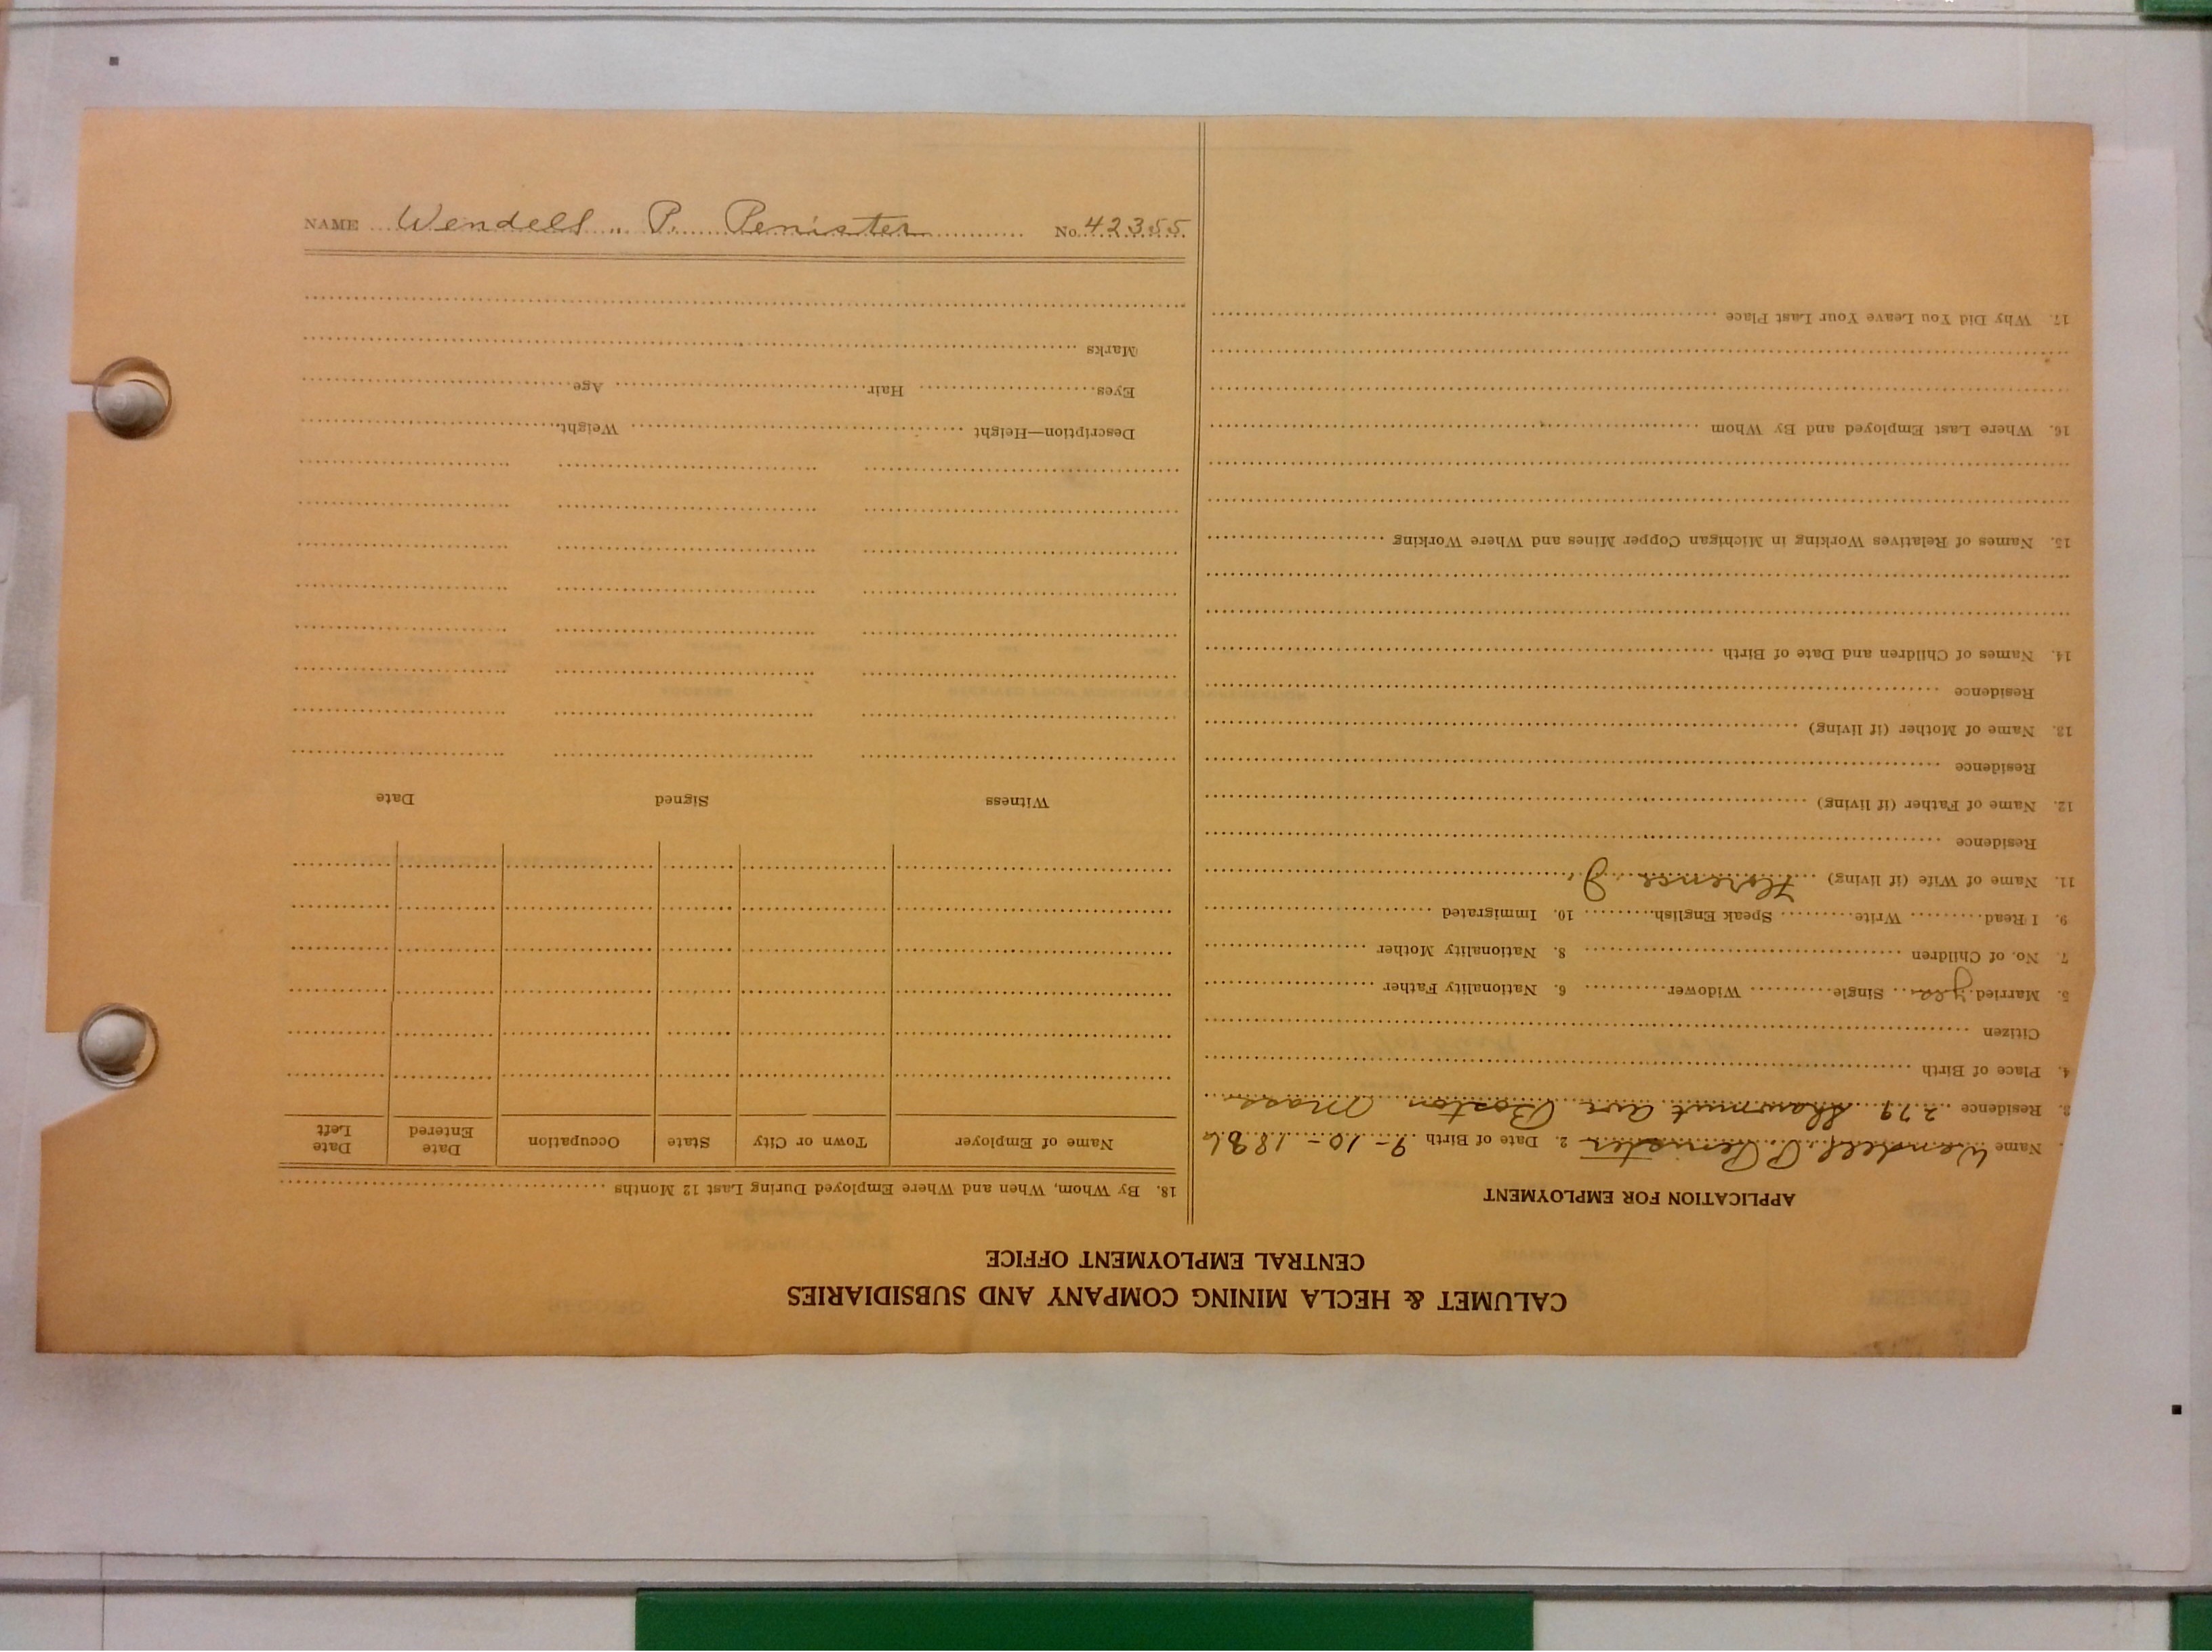 NAME Wendell P. Penister No. 42355
CALUMET & HECLA MINING COMPANY AND SUBSIDIARIES
CENTRAL EMPLOYMENT OFFICE
APPLICATION FOR EMPLOYMENT
Name Wendell P Penister 2. Date of Birth 9-10-1886
3. Residence 279 Shawmut Ave Boston Mass
4. Place of Birth
Citizen
5. Married yes Single Widower 6. Nationality Father
7. No. of Children 8. Nationality Mother
9. I Read Write Speak English 10. Immigrated
11. Name of Wife (if living) Florence J.
Residence
12. Name of Father (if living)
Residence
13. Name of Mother (if living)
Residence
14. Names of Children and Date of Birth
15. Names of Relatives Working in Michigan Copper Mines and Where Working
16. Where Last Employed and By Whom
17. Why Did You Leave Your Last Place
18. By Whom, When and Where Employed During Last 12 Months
Name of Employer Town or City State Occupation Date Entered Date Left
Witness Signed Date
Description—Height Weight
Eyes Hair Age
Marks